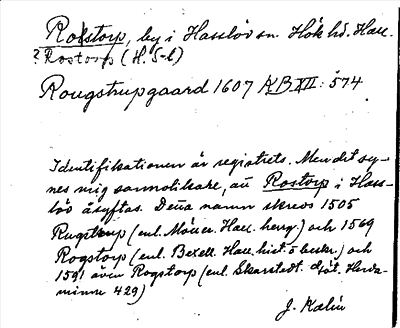 Rostorp, by i Hasslöv sn Hök hd. Hall.
? Rostorp (H. S-t)
Rougstrupgaard 1607 KB XII: 574
Identifikationen är registrets. Men det sy-
nes mig sannolikare, att Rostorp i Hass-
löv åsyftas. Detta namn skrevs 1505
Rugstrup (enl. Möller Hall. herg.) och 1569
Rogstorp (enl. Bexell Hall. hist. o beskr.) och
1591 även Rogstorp (enl. Skarstedt Göt. Herda-
minne 429)
J. Kalén